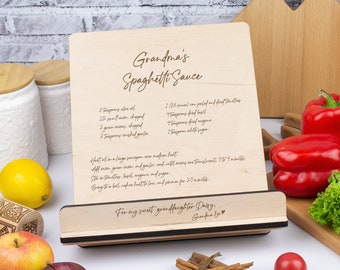 Grandma's
Spaghetti Sauce
2 teaspoons olive oil
1/2 small onion, chopped
2 green onions, chopped
2 teaspoons crushed garlic
1 (28 ounce) can peeled and diced tomatoes
2 teaspoons dried basil
2 teaspoons dried oregano
2 teaspoons white sugar
Heat oil in a large saucepan over medium heat.
Add onion, green onion, and garlic, and cook until onions are translucent, 2 to 4 minutes.
Stir in tomatoes, basil, oregano, and sugar.
Bring to a boil, reduce heat to low, and simmer for 20 minutes.
For my sweet granddaughter Daisy,
Grandma